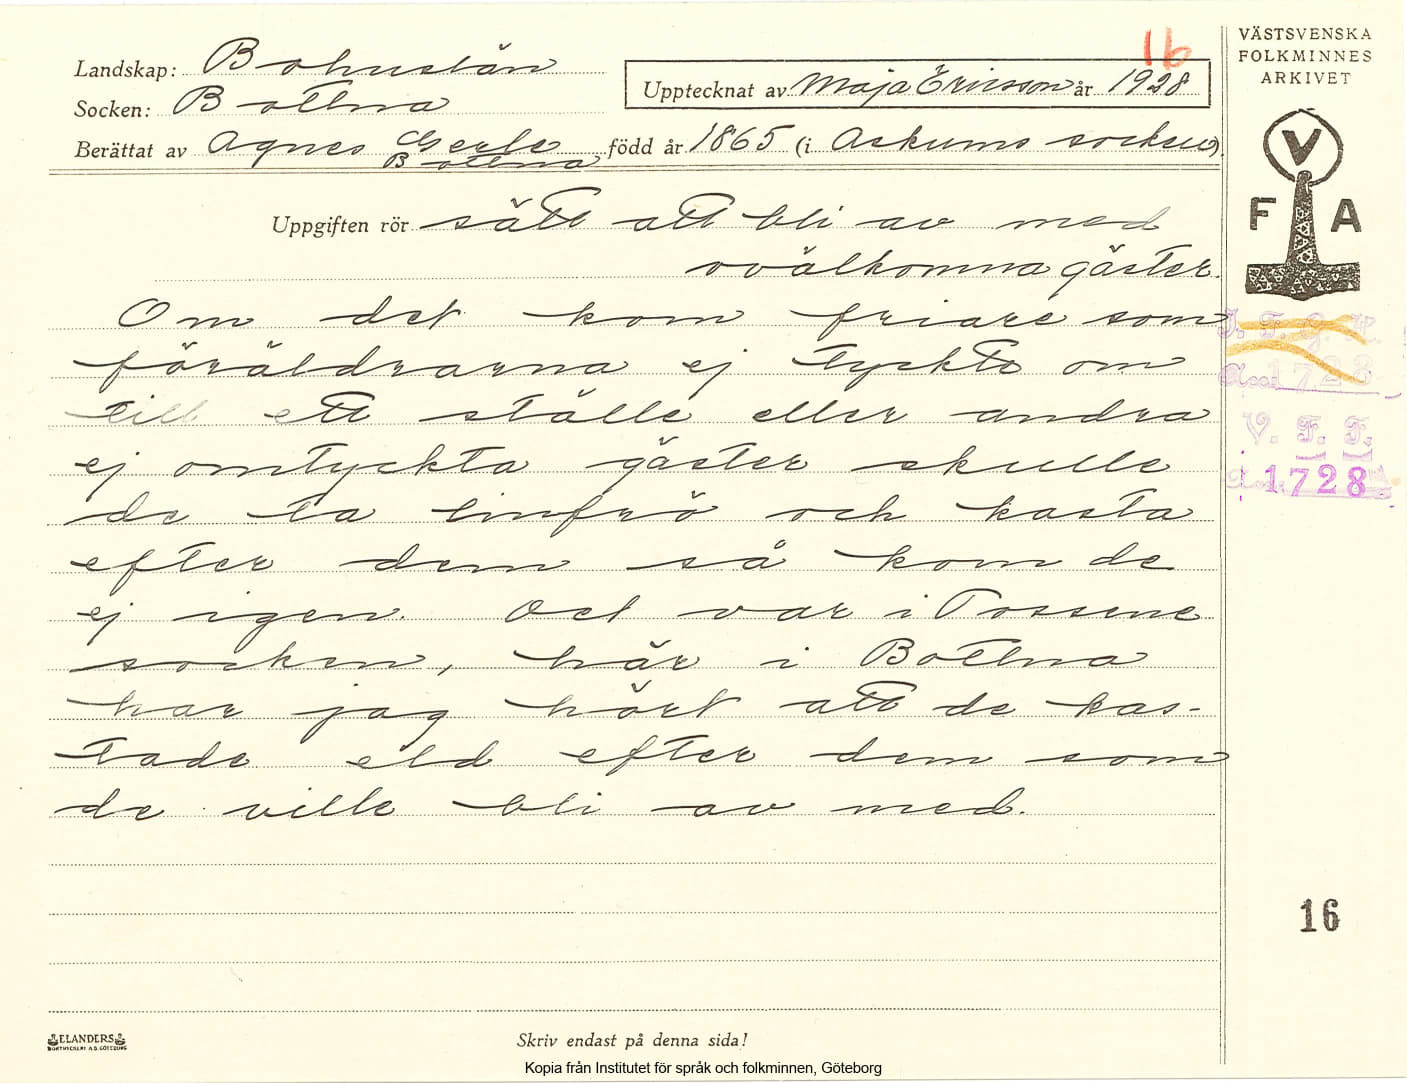 16
VÄSTSVENSKA
FOLKMINNES
ARKIVET
Landskap: Bohuslän
Upptecknat av Maja Ericsson år 1928
Socken: Bottna
Berättat av Agnes Gerle född år 1865 (i Askums socken)
Bottna
V
F A
Uppgiften rör sätt att bli av med
ovälkomna gäster.
Om det kom friare som
föräldrarna ej tyckte om
till ett ställe eller andra
ej omtyckta gäster skulle
de ta linfrö och kasta
efter dem så kom de
ej igen. Det var i Tossene
socken, här i Bottna
har jag hört att de kas-
tade eld efter dem som
de ville bli av med.
1728
V. F. F.
1.728
16
ELANDERS
Skriv endast på denna sida!
Kopia från Institutet för språk och folkminnen, Göteborg